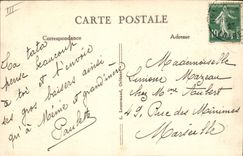 III
CARTE POSTALE
Correspondance
Adresse
Ta tata
pense beaucoup
à toi et t'envoie
ses gros baisers ainsi
qu'à Mérie et grand'mère
Paulette
Mademoiselle
Simone Mazeau
chez Mme Jaubert
49, Rue des Minimes
Marseille